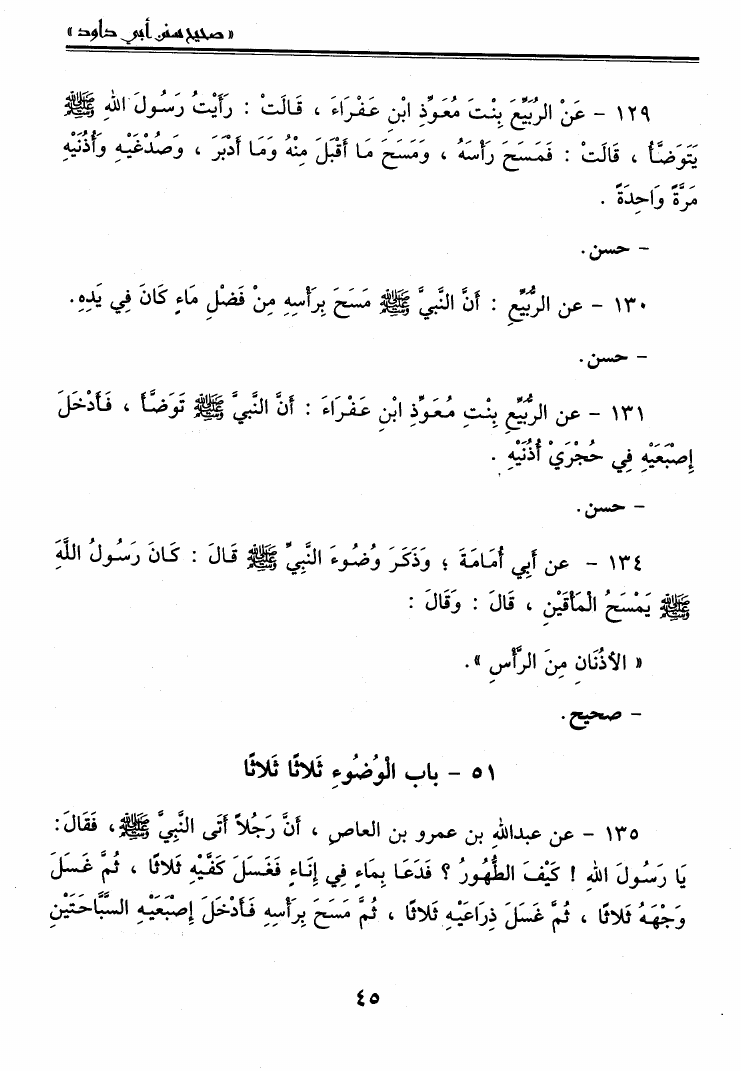 « صحيح سنن أبي داود »
١٢٩ - عَنْ الرُّبَيِّعَ بِنْتَ مُعَوِّذِ ابْنِ عَفْرَاءَ ، قَالَتْ : رَأَيْتُ رَسُولَ اللهِ ﷺ
يَتَوَضَّأُ ، قَالَتْ : فَمَسَحَ رَأْسَهُ ، وَمَسَحَ مَا أَقْبَلَ مِنْهُ وَمَا أَدْبَرَ ، وَصُدْغَيْهِ وَأُذُنَيْهِ
مَرَّةً وَاحِدَةً .
- حسن.
١٣٠ - عن الرُّبَيِّعِ : أَنَّ النَّبِيَّ ﷺ مَسَحَ بِرَأْسِهِ مِنْ فَضْلِ مَاءٍ كَانَ فِي يَدِهِ.
- حسن.
١٣١ - عن الرُّبَيِّعِ بِنْتِ مُعَوِّذِ ابْنِ عَفْرَاءَ : أَنَّ النَّبِيَّ ﷺ تَوَضَّأَ ، فَأَدْخَلَ
إِصْبَعَيْهِ فِي حُجْرَيْ أُذُنَيْهِ .
- حسن.
١٣٤ - عن أَبِي أُمَامَةَ ؛ وَذَكَرَ وُضُوءَ النَّبِيِّ ﷺ قَالَ : كَانَ رَسُولُ اللَّهِ
ﷺ يَمْسَحُ الْمَأْقَيْنِ ، قَالَ : وَقَالَ :
« الأُذُنَانِ مِنَ الرَّأْسِ ».
- صحيح.
٥١ - باب الْوُضُوءِ ثَلاثًا ثَلاثًا
١٣٥ - عن عبدالله بن عمرو بن العاصِ ، أَنَّ رَجُلاً أَتَى النَّبِيَّ ﷺ، فَقَالَ:
يَا رَسُولَ اللهِ ! كَيْفَ الطُّهُورُ ؟ فَدَعَا بِمَاءٍ فِي إِنَاءٍ فَغَسَلَ كَفَّيْهِ ثَلاثًا ، ثُمَّ غَسَلَ
وَجْهَهُ ثَلاثًا ، ثُمَّ غَسَلَ ذِرَاعَيْهِ ثَلاثًا ، ثُمَّ مَسَحَ بِرَأْسِهِ فَأَدْخَلَ إِصْبَعَيْهِ السَّبَّاحَتَيْنِ
٤٥